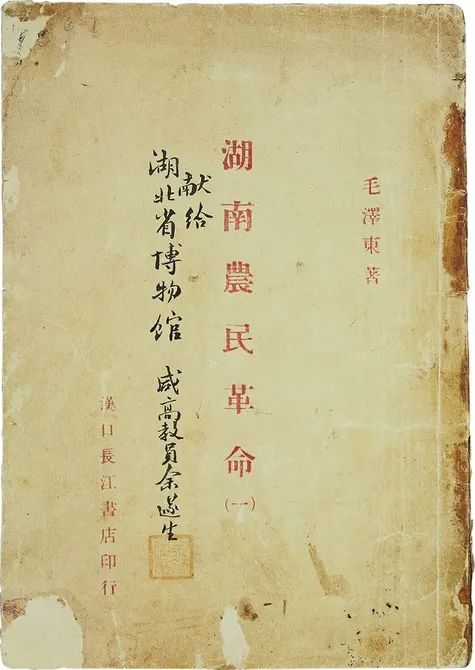 毛澤東著
湖南農民革命
(一)
献给
湖北省博物馆
咸高教員余遂生
漢口長江書店印行